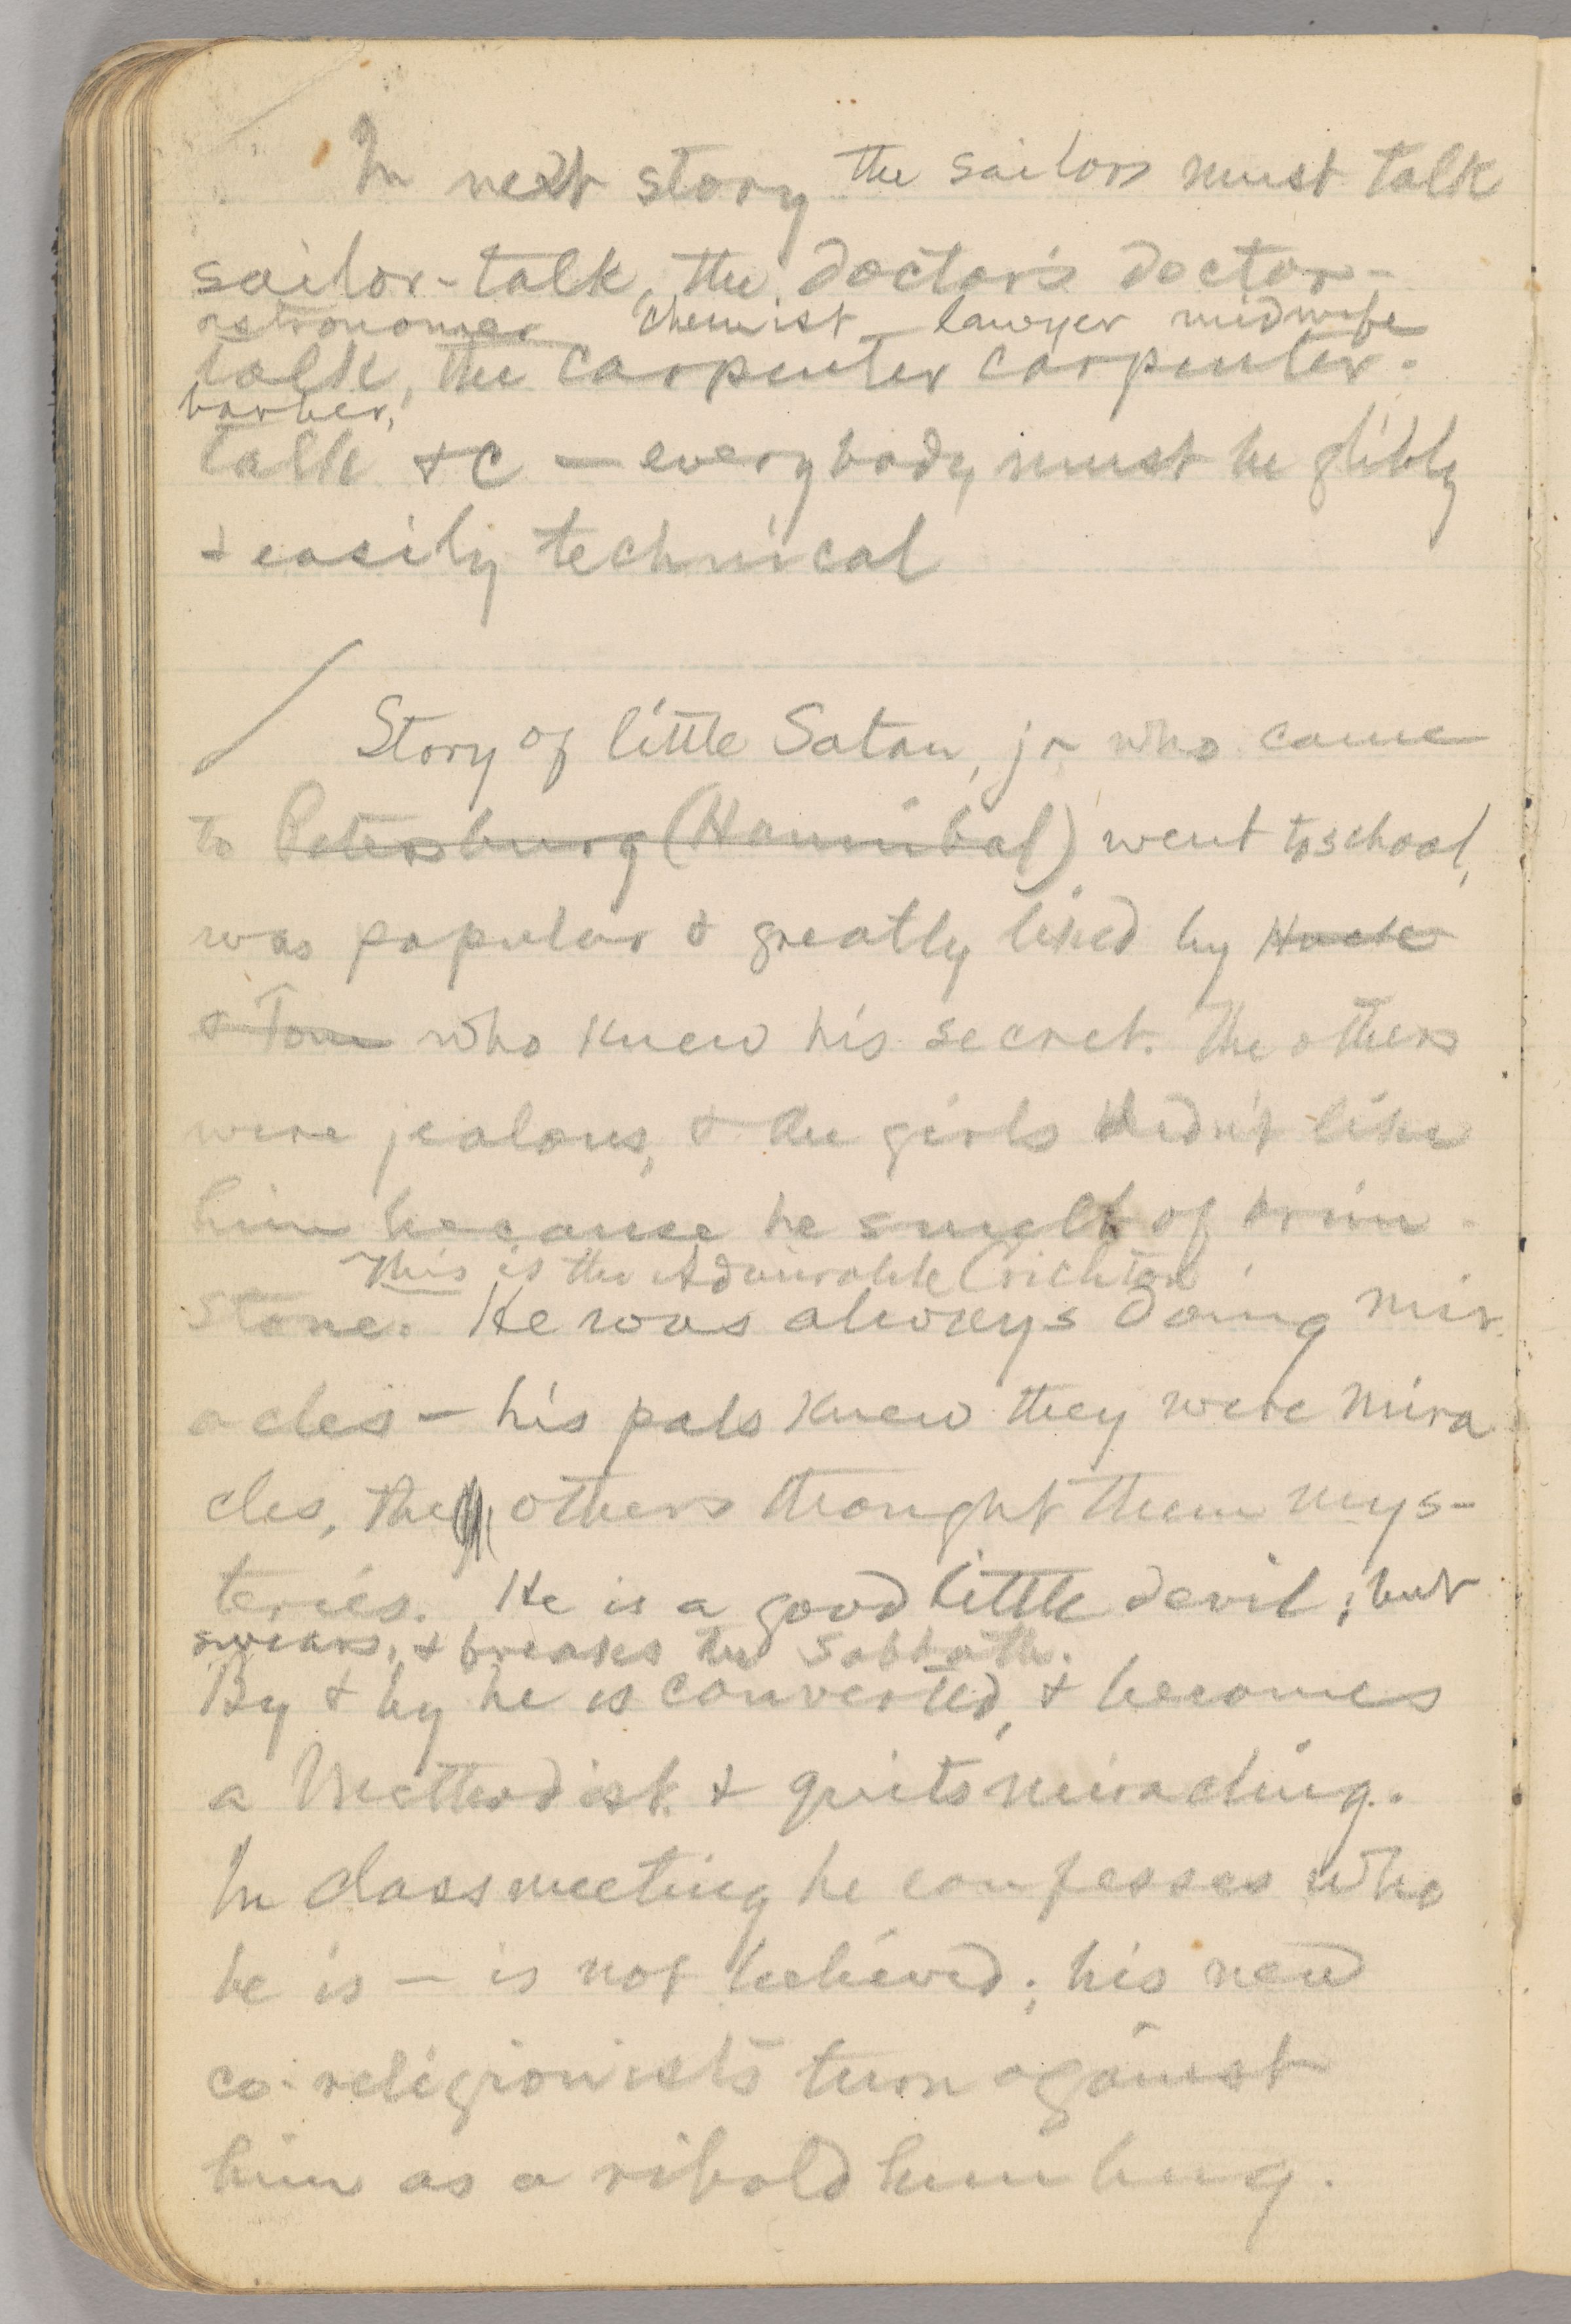 In next story the sailors must talk
sailor-talk, the doctors doctor-
astronomer chemist lawyer midwife
talk, the carpenter carpenter-
barber,
talk &c — everybody must be glibly
& easily technical
Story of little Satan, jr who came
to Petersburg (Hannibal) went to school,
was popular & greatly liked by Huck
& Tom who knew his secret. The others
were jealous, & the girls didn't like
him because he smelt of brim-
This is the Admirable Crichton
stone. He was always doing mir-
acles — his pals knew they were mira
cles, the others thought them mys-
teries. He is a good little devil; but
swears, & breaks the Sabbath.
By & by he is converted, & becomes
a Methodist & quits miracling.
In class meeting he confesses who
he is — is not believed; his new
co-religionists turn against
him as a ribald humbug.